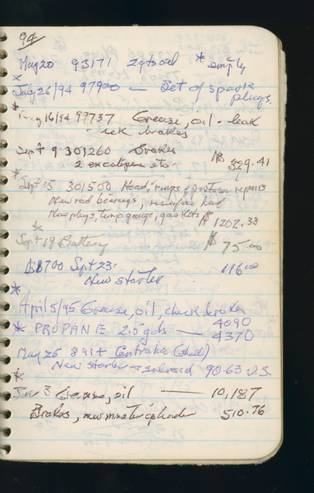 94
May 20 93171 2gtoad * empty
* July 26/94 97900 — Set of spark
plugs.
* Aug 16/94 97737 Grease, oil - leak
brakes
Sept 9 301260 brakes
2 329.41
* Sept 15 301500 Head, rings & piston repairs
New rod bearings, head
New plugs, temp gauge, gaskets 1202.38
Sept 19 Battery $ 75.00
8700 Sept 23 116.00
New starter
*
April 5/95 Grease, oil, check brake
* PROPANE 20 gals — 4090
4370
May 25 8914
New starter solenoid 90.63 U.S.
*
June 3 Grease, oil — 10,187
Brakes, new master cylinder 510.76